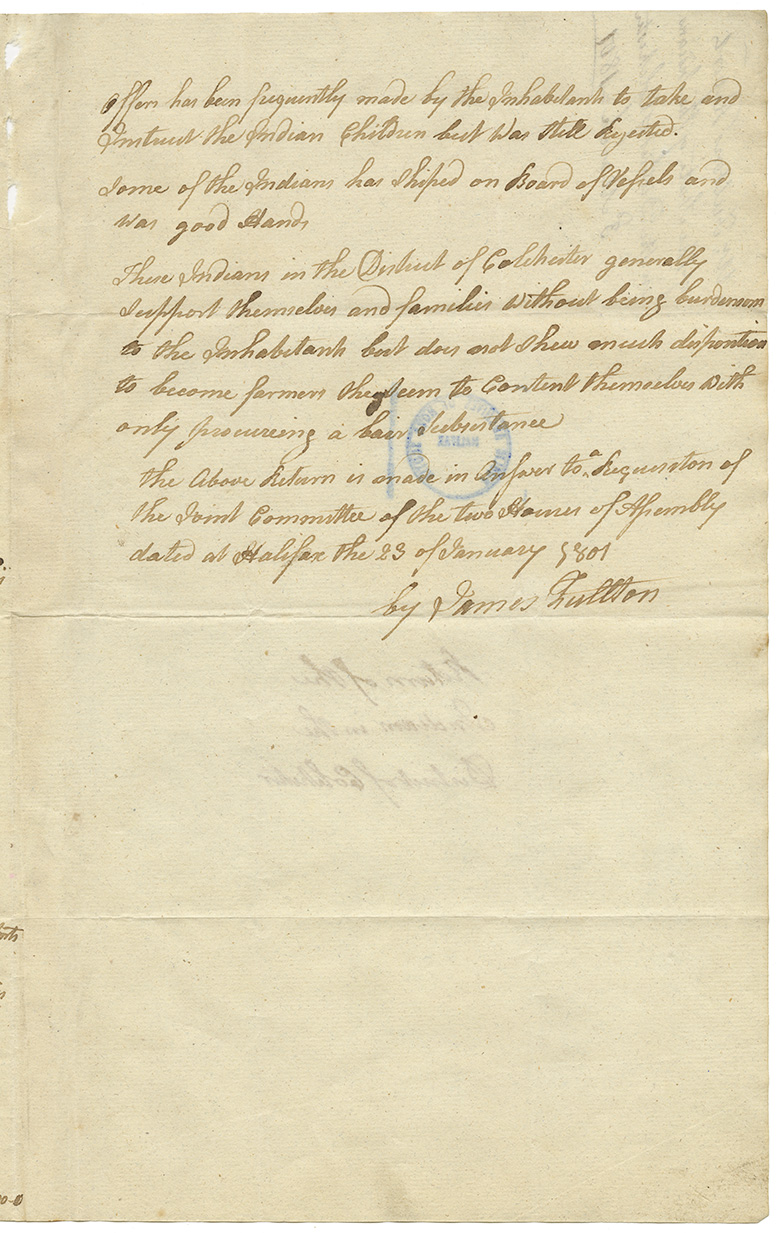 offers has been frequently made by the Inhabitants to take and
Instruct the Indian Children but was still Rejected.
Some of the Indians has Shiped on Board of Vessels and
was good Hands
These Indians in the District of Colchester generally
Support themselves and families without being burdensom
to the Inhabitants but does not Shew much disposition
to become farmers they Seem to Content themselves with
only procureing a bair Subsistance
the Above Return is made in Answer to a Requesston of
the Joint Committee of the two Houses of Assembly
dated at Halifax the 23 of January 1801
by James Fullton
Return of the
Indians in the
District of Colchester